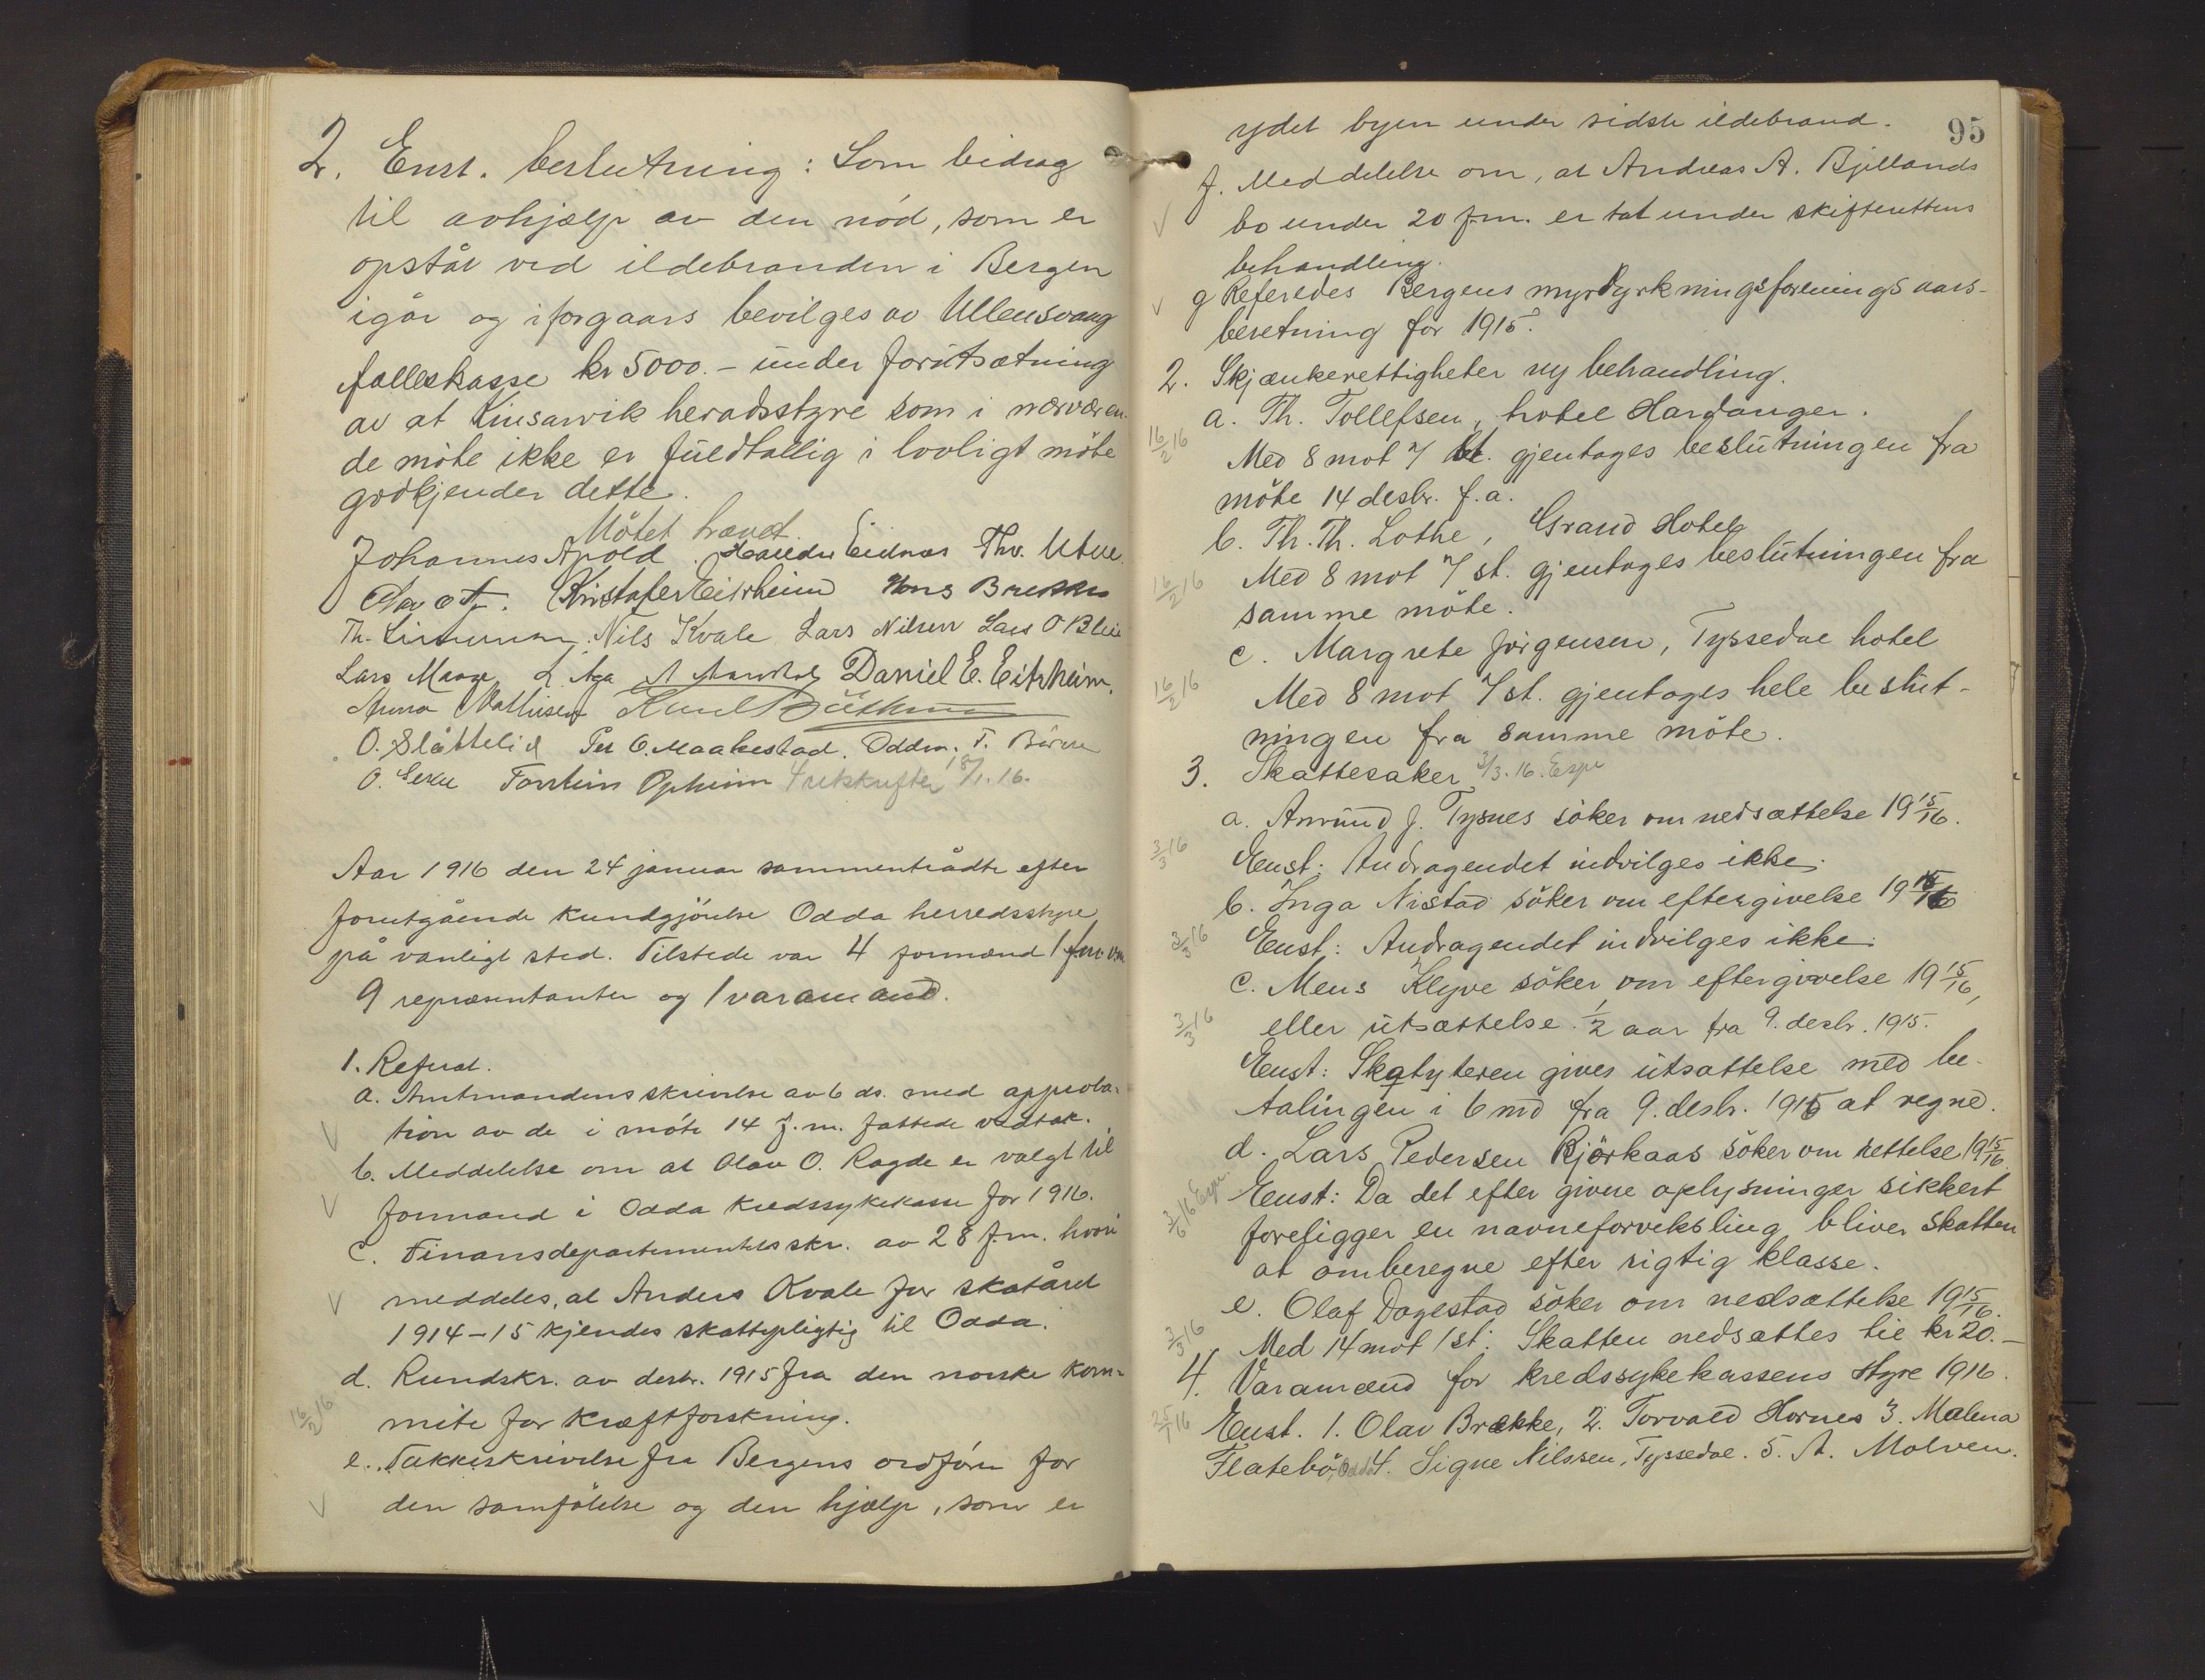 2. Enst. beslutning: Som bidrag
til avhjælp av den nöd, som er
opstår ved ildebranden i Bergen
igår og iforgaars bevilges av Ullensvang
fælleskasse kr 5000.- under forutsætning
av at Kinsarvik heradsstyre som i nærværen-
de möte ikke er fuldtallig i lovligt möte
godkjender dette.
Mötet hævet.
Johannes Apold. Eidnes Thv. Utne.
Kristofer Eitrheim Hans Brekke
Th. Nils Kvale Lars Nilsen Lars O Bleie
Lars Maage L Aga Daniel E. Eitrheim.
Anna Mathisen Knut
O. Slåttelid Per O. Maakestad. Oddm. T. Börve
O. Torstein Opheim Utskrifter 18/1. 16.
Aar 1916 den 24 januar sammentrådte efter
forutgående kundgjörelse Odda herredsstyre
på vanligt sted. Tilstede var 4 formænd 1 form. v.m
9 repræsentanter og 1 varamand.
1. Referat.
a. Amtmandens skrivelse av 6 ds. med approba-
tion av de i möte 14 f.m. fattede vedtak.
b. Meddelelse om at Olav O. Ragde er valgt til
formand i Odda kredssykekasse for 1916.
c. Finansdepartementets skr. av 28 f.m. hvori
meddeles, at Anders Kvale for skatåret
1914-15 kjendes skattepligtig til Odda.
d. Rundskr. av desbr. 1915 fra den norske kom-
16/2 16 mite for kræftforskning.
e. Takkeskrivelse fra Bergens ordförer for
den samfölelse og den hjælp, som er
95
ydet byen under sidste ildebrand.
f. Meddelelse om, at Andreas A. Bjellands
bo under 20 f.m. er tat under skifterettens
behandling.
g Referedes Bergens myrdyrkningsforenings aars-
beretning for 1915.
2. Skjænkerettigheter ny behandling.
a. Th. Tollefsen, hotel Hardanger.
16/2 16 Med 8 mot 7 st. gjentages beslutningen fra
möte 14 desbr. f.a.
b. Th. Th. Lothe, Grand Hotel
16/2 16 Med 8 mot 7 st. gjentages beslutningen fra
samme möte.
c. Margrete Jörgensen, Tyssedal hotel
16/2 16 Med 8 mot 7 st. gjentages hele beslut-
ningen fra samme möte.
3. Skattesaker 3/3. 16. Espe
a. Amund J. Tysnes söker om nedsættelse 1915/16.
3/3 16 Enst: Andragendet indvilges ikke.
b. Inga Nistad söker om eftergivelse 1915/16
3/3 16 Enst: Andragendet indvilges ikke.
c. Mens Klyve söker om eftergivelse 1915/16,
3/3 16 eller utsættelse 1/2 aar fra 9. desbr. 1915.
Enst: Skatyteren gives utsættelse med be-
talingen i 6 md fra 9. desbr. 1915 at regne.
d. Lars Pedersen Bjørkaas söker om rettelse 1915/16.
Enst: Da det efter givne oplysninger sikkert
foreligger en navneforveksling bliver skatten
at omberegne efter rigtig klasse.
e. Olaf Dagestad söker om nedsættelse 1915/16.
3/3 16 Med 14 mot 1 st: Skatten nedsættes til kr 20.-
4. Varamænd for kredssykekassens styre 1916.
25/1 16 Enst. 1. Olav Brække, 2. Torvald Hornes 3. Malena
Flatebö, Odda 4. Signe Nilssen, Tyssedal. 5. A. Molven.